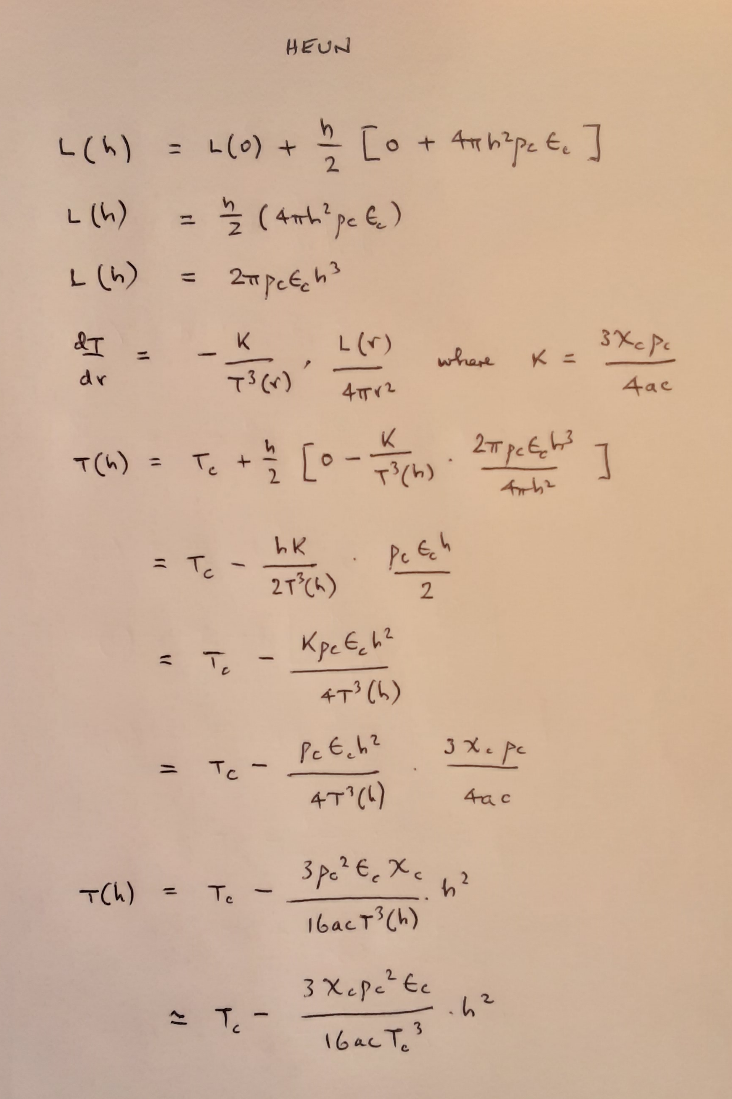 HEUN
L(h) = L(0) + h/2 [0 + 4πh²ρc ϵc]
L(h) = h/2 (4πh²ρc ϵc)
L(h) = 2πρcϵch³
dT/dr = - K/T³(r) . L(r)/4πr² where K = 3χcρc/4ac
T(h) = Tc + h/2 [0 - K/T³(h) . 2πρcϵch³/4πh²]
= Tc - hK/2T³(h) . ρcϵch/2
= Tc - Kρcϵch²/4T³(h)
= Tc - ρcϵch²/4T³(h) . 3χcρc/4ac
T(h) = Tc - 3ρc²ϵcχc/16acT³(h) . h²
≃ Tc - 3χcρc²ϵc/16acTc³ . h²